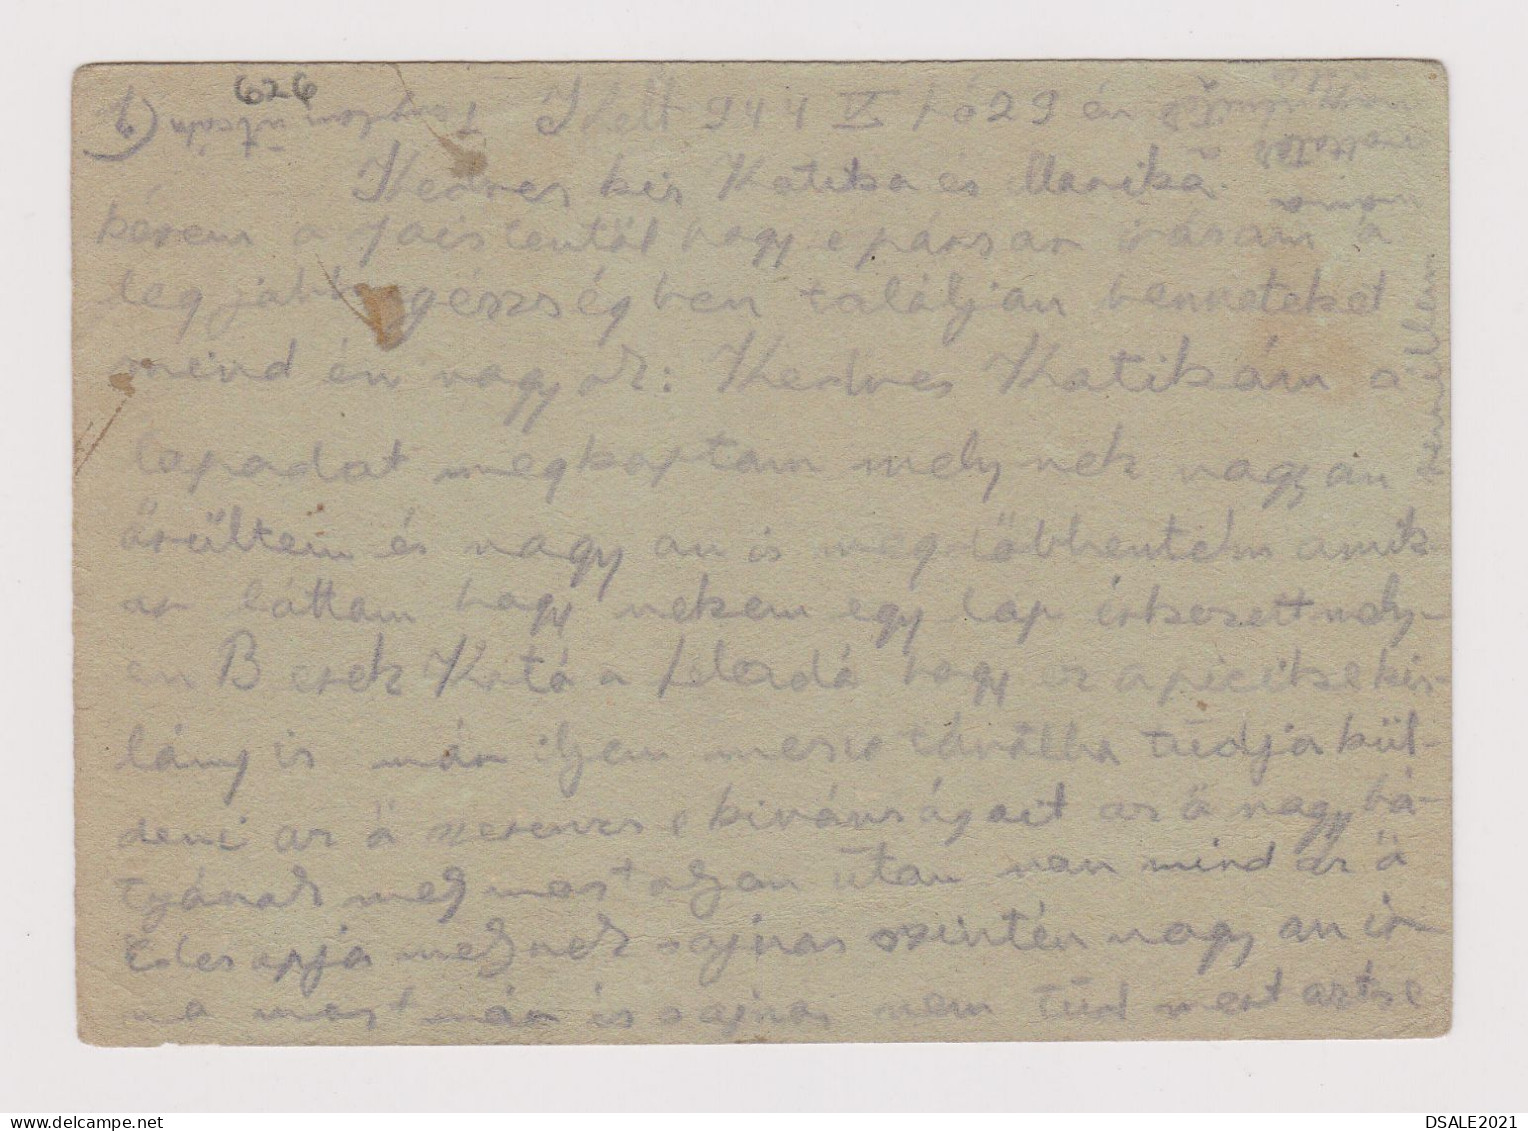 626
1.) Kelt 944 V hó 29 én
Kedves kis Katika és Marika.
kérem a jóistentöl hogy e pársar irásam a
leg jobb egészségben találjan benneteket
mind én vagyok: Kedves Katikám a
lapadat megkaptam melynek nagyan
örültem és nagy an is meg döbbentem amik
ar láttam hogy nekem egy lap érkezett mely-
en B erek Kató a feladó hogy ez a picitke kis-
lány is már ilyen messze távolba tudja kül-
deni az ö szerencse kivánságait az ö nagybá-
tyának mek most olyan útan van mind az ö
Edes apja meknek sajnas szintén nagy an ir
na most már is sajnas nem tud mert azt se
utcán
DSALE2021